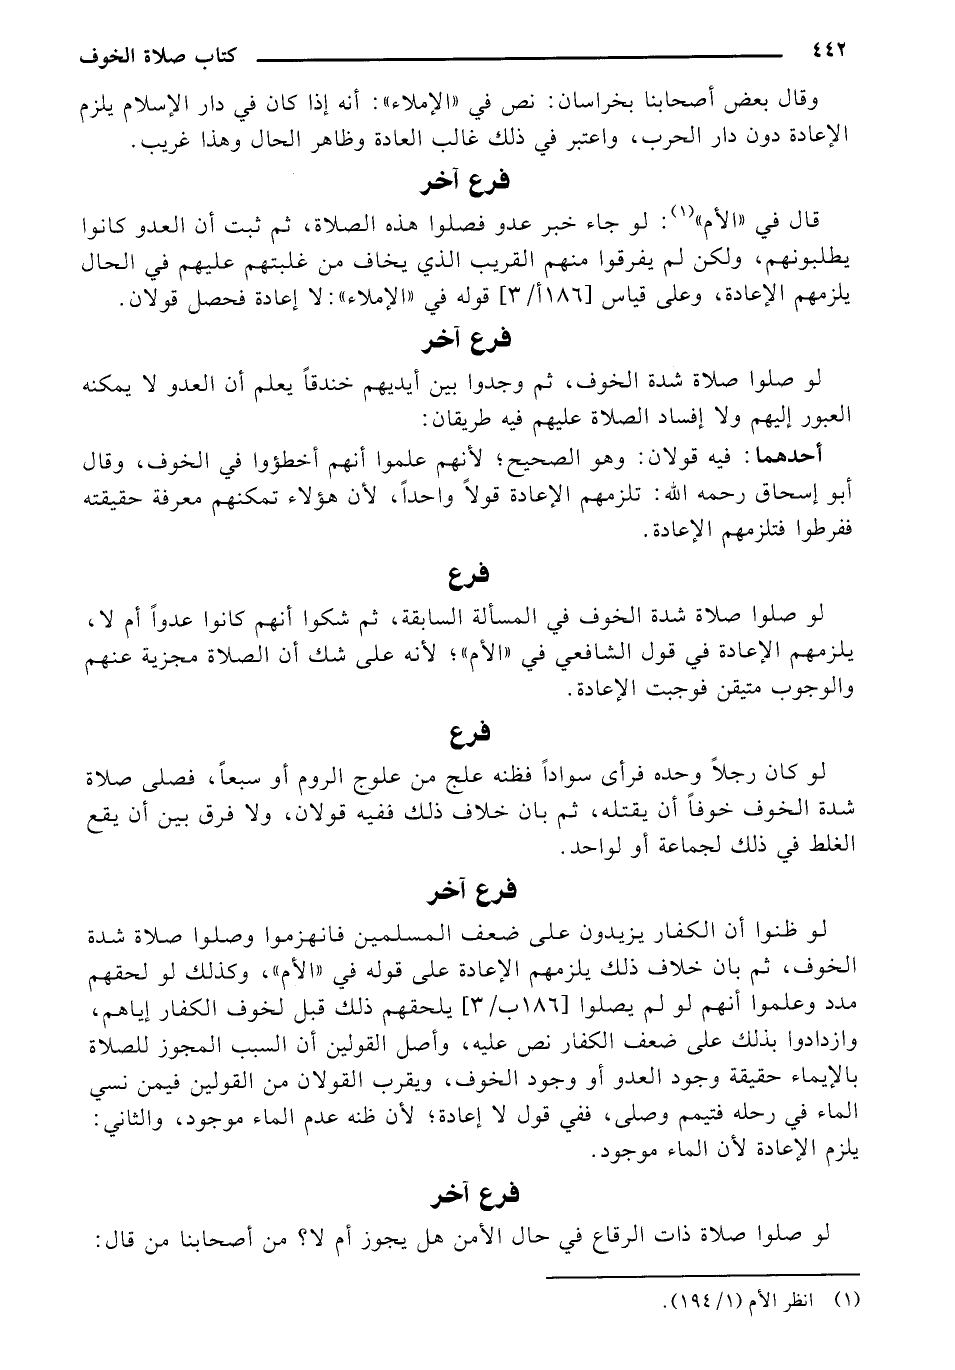 ٤٤٢ كتاب صلاة الخوف
وقال بعض أصحابنا بخراسان: نص في «الإملاء»: أنه إذا كان في دار الإسلام يلزم
الإعادة دون دار الحرب، واعتبر في ذلك غالب العادة وظاهر الحال وهذا غريب.
فرع آخر
قال في «الأم»(١): لو جاء خبر عدو فصلوا هذه الصلاة، ثم ثبت أن العدو كانوا
يطلبونهم، ولكن لم يفرقوا منهم القريب الذي يخاف من غلبتهم عليهم في الحال
يلزمهم الإعادة، وعلى قياس [١٨٦أ/ ٣] قوله في «الإملاء»: لا إعادة فحصل قولان.
فرع آخر
لو صلوا صلاة شدة الخوف، ثم وجدوا بين أيديهم خندقاً يعلم أن العدو لا يمكنه
العبور إليهم ولا إفساد الصلاة عليهم فيه طريقان:
أحدهما: فيه قولان: وهو الصحيح؛ لأنهم علموا أنهم أخطؤوا في الخوف، وقال
أبو إسحاق رحمه الله: تلزمهم الإعادة قولاً واحداً، لأن هؤلاء تمكنهم معرفة حقيقته
ففرطوا فتلزمهم الإعادة.
فرع
لو صلوا صلاة شدة الخوف في المسألة السابقة، ثم شكوا أنهم كانوا عدواً أم لا،
يلزمهم الإعادة في قول الشافعي في «الأم»؛ لأنه على شك أن الصلاة مجزية عنهم
والوجوب متيقن فوجبت الإعادة.
فرع
لو كان رجلاً وحده فرأى سواداً فظنه علج من علوج الروم أو سبعاً، فصلى صلاة
شدة الخوف خوفاً أن يقتله، ثم بان خلاف ذلك ففيه قولان، ولا فرق بين أن يقع
الغلط في ذلك لجماعة أو لواحد.
فرع آخر
لو ظنوا أن الكفار يزيدون على ضعف المسلمين فانهزموا وصلوا صلاة شدة
الخوف، ثم بان خلاف ذلك يلزمهم الإعادة على قوله في «الأم»، وكذلك لو لحقهم
مدد وعلموا أنهم لو لم يصلوا [١٨٦ب/ ٣] يلحقهم ذلك قبل لخوف الكفار إياهم،
وازدادوا بذلك على ضعف الكفار نص عليه، وأصل القولين أن السبب المجوز للصلاة
بالإيماء حقيقة وجود العدو أو وجود الخوف، ويقرب القولان من القولين فيمن نسي
الماء في رحله فتيمم وصلى، ففي قول لا إعادة؛ لأن ظنه عدم الماء موجود، والثاني:
يلزم الإعادة لأن الماء موجود.
فرع آخر
لو صلوا صلاة ذات الرقاع في حال الأمن هل يجوز أم لا؟ من أصحابنا من قال:
(١) انظر الأم (١/ ١٩٤).